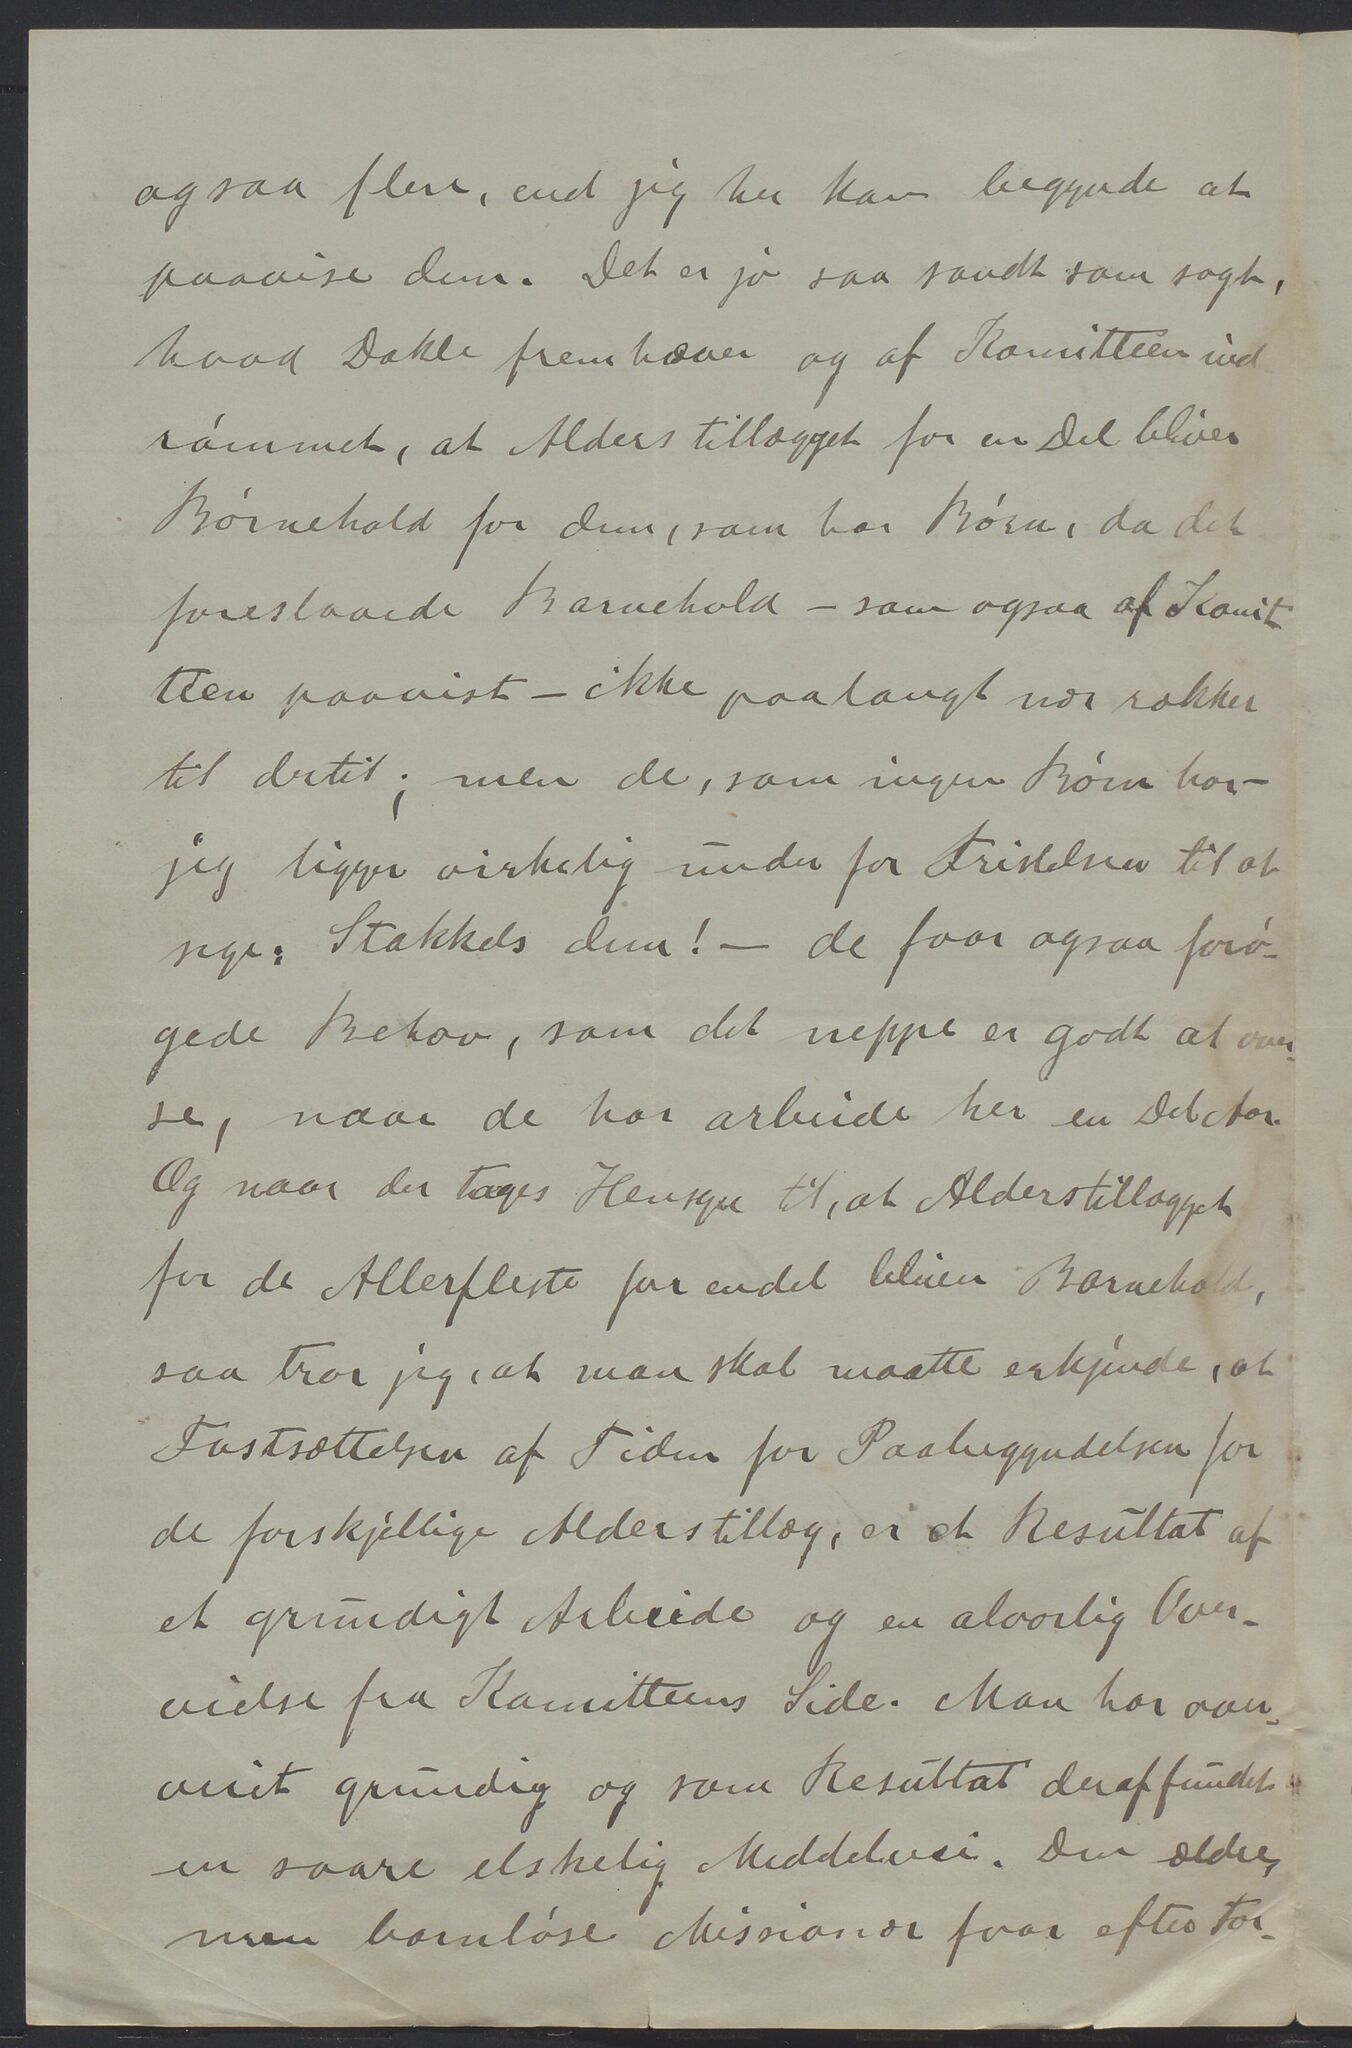 ogsaa flere, end jeg her kan begynde at
paavise dem. Det er jo saa sandt som sagt,
hvad Dahle fremhæver og af Komitteen ind
rømmet, at Alderstillægget for en Del bliver
Børnehold for dem, som har Børn, da det
foreslaaede Barnehold – som ogsaa af Komit
teen paavist – ikke paalangt nær rækker
til dertil; men de, som ingen Børn har –
jeg ligger virkelig under for Fristelsen til at
sige: Stakkels dem! – de faar ogsaa forø-
gede Behov, som det neppe er godt at over-
se, naar de har arbeide her en Del Aar.
Og naar der tages Hensyn til, at Alderstillægget
for de Allerfleste for endel bliver Barnehold,
saa tror jeg, at man skal maatte erkjende, at
Fastsættelsen af Tiden for Paabegyndelsen for
de forskjellige Alderstillæg, er et Resultat af
et grundigt Arbeide og en alvorlig Over-
veielse fra Komitteens Side. Man har over-
veiet grundig og som Resultat deraf fundet
en saare elskelig Middelvei. Den ældre,
men barnløse Missionær faar efter For-